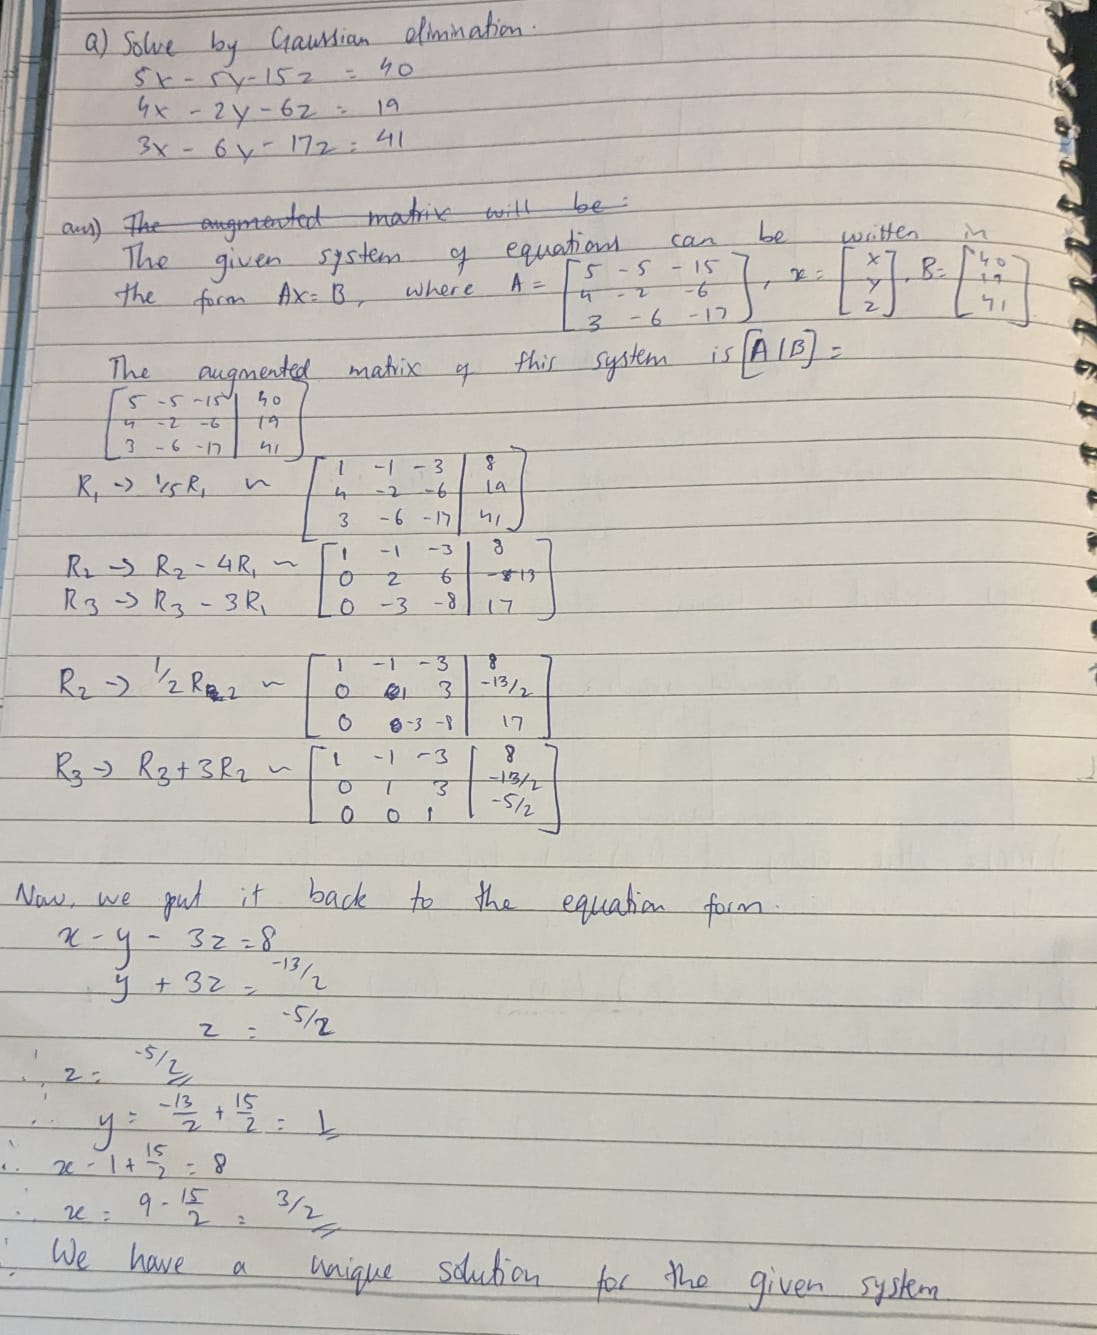 Q) Solve by Gaussian elimination.
5x - 5y - 15z = 40
4x - 2y - 6z = 19
3x - 6y - 17z = 41
ans) The augmented matrix will be:
The given system of equations can be written in
the form AX = B, where A = [5 -5 -15 / 4 -2 -6 / 3 -6 -17], x = [x / y / z], B = [40 / 19 / 41]
The augmented matrix of this system is [A|B] =
[5 -5 -15 | 40
4 -2 -6 | 19
3 -6 -17 | 41]
R₁ → 1/5 R₁ ~ [1 -1 -3 | 8
4 -2 -6 | 19
3 -6 -17 | 41]
R₂ → R₂ - 4R₁ ~ [1 -1 -3 | 8
0 2 6 | -13
R₃ → R₃ - 3R₁ 0 -3 -8 | 17]
R₂ → 1/2 R₂ ~ [1 -1 -3 | 8
0 1 3 | -13/2
0 -3 -8 | 17]
R₃ → R₃ + 3R₂ ~ [1 -1 -3 | 8
0 1 3 | -13/2
0 0 1 | -5/2]
Now, we put it back to the equation form.
x - y - 3z = 8
y + 3z = -13/2
z = -5/2
∴ z = -5/2
∴ y = -13/2 + 15/2 = 1
∴ x - 1 + 15/2 = 8
∴ x = 9 - 15/2 = 3/2
∴ We have a unique solution for the given system